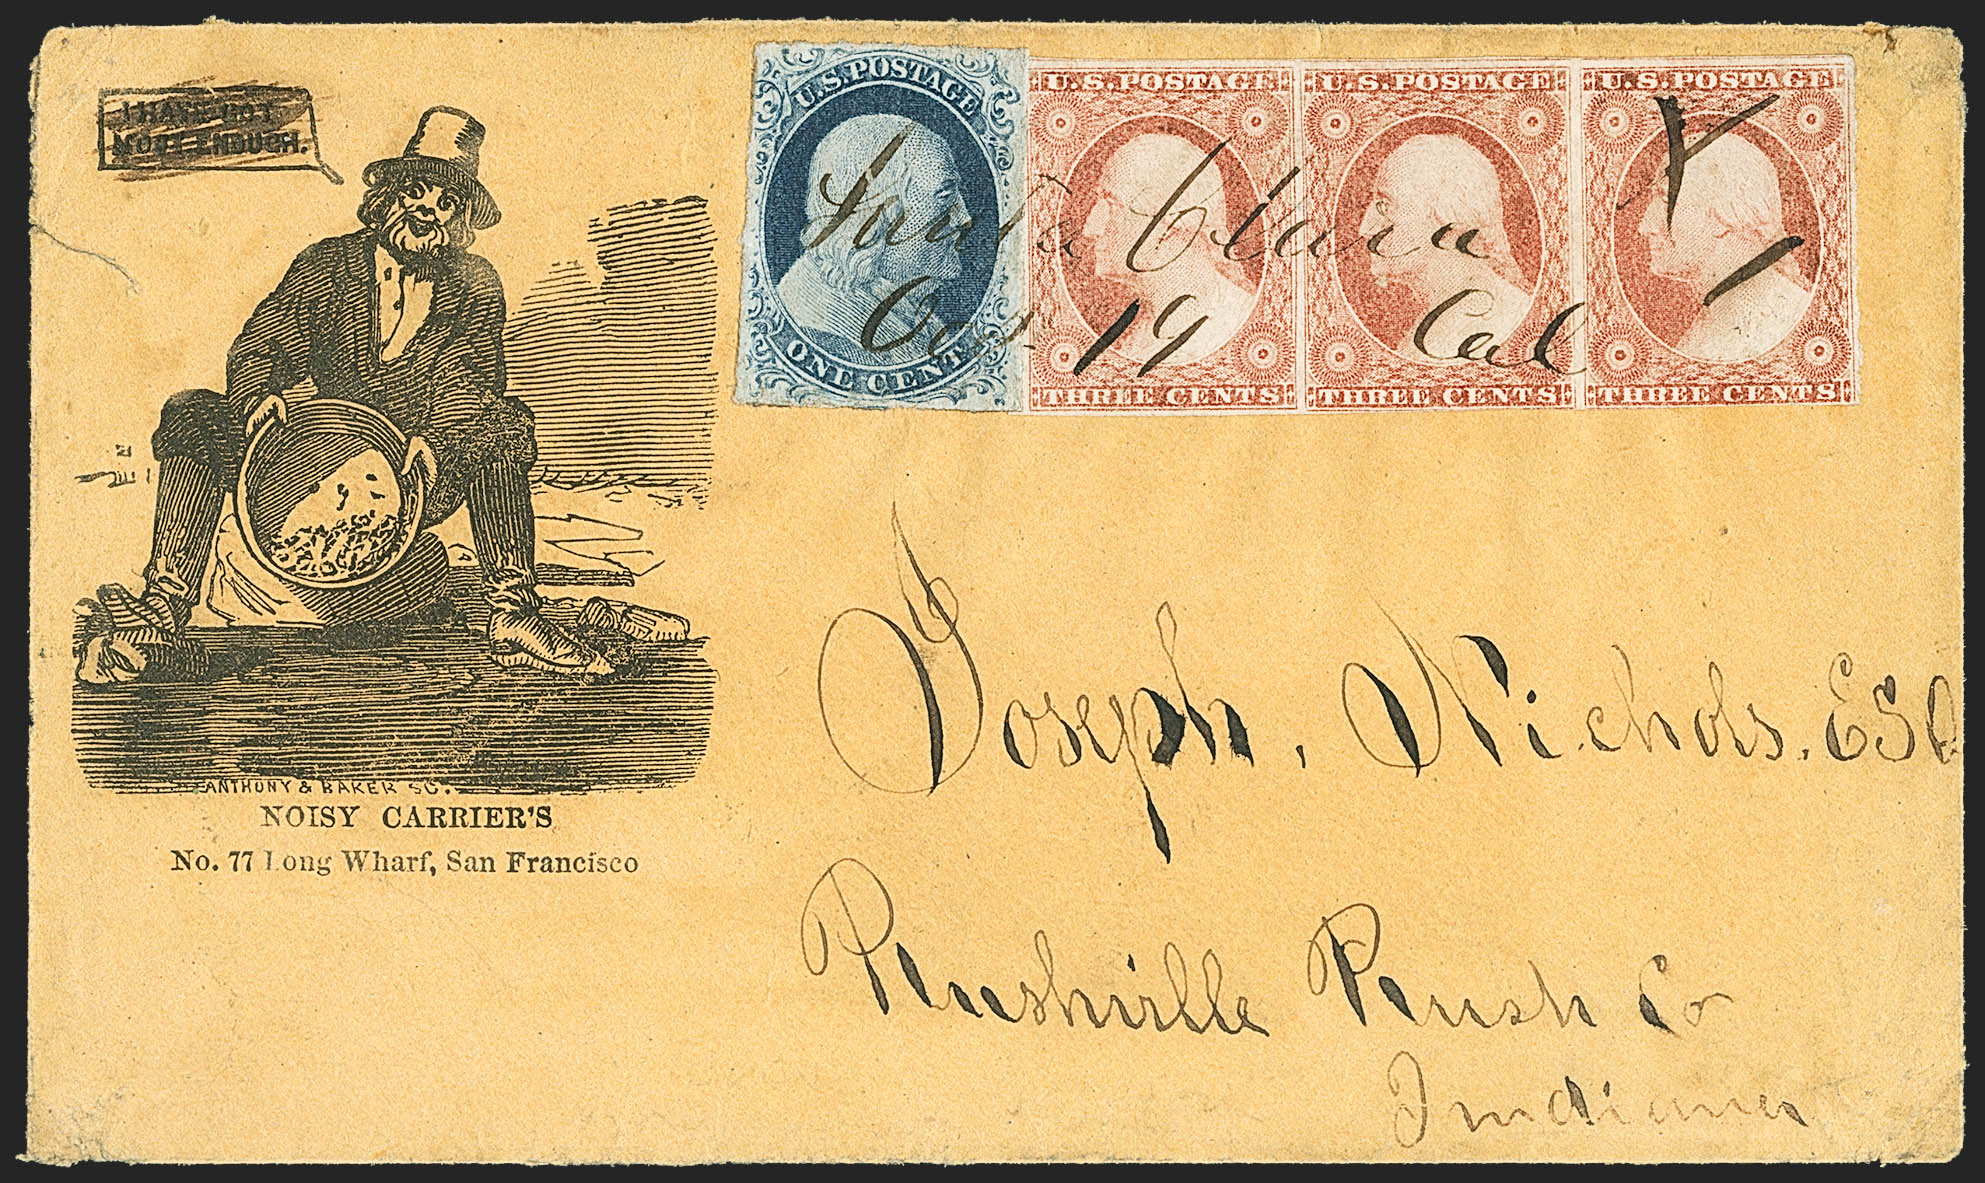 I HAVE NOT
MOST ENOUGH.
U.S. POSTAGE
ONE CENT
U.S. POSTAGE
THREE CENTS
U.S. POSTAGE
THREE CENTS
U.S. POSTAGE
THREE CENTS
Santa Clara
Oct. 19 Cal
ANTHONY & BAKER SC.
NOISY CARRIER'S
No. 77 Long Wharf, San Francisco
Joseph. Nichols. ESQ
Rushville Rush Co
Indiana